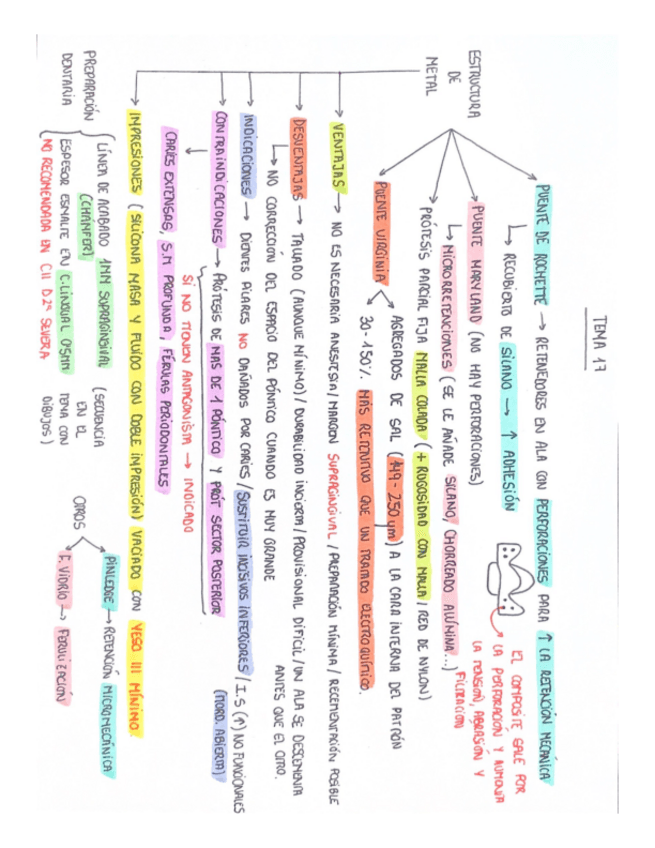 TEMA 17
ESTRUCTURA
DE
METAL
PUENTE DE ROCHETTE → RETENEDORES EN ALA CON PERFORACIONES PARA ↑ LA RETENCIÓN MECÁNICA
↳ RECUBIERTO DE SILANO → ↑ ADHESIÓN
EL COMPOSITE SALE POR
LA PERFORACIÓN Y AUMENTA
LA TENSIÓN, ABRASIÓN Y
FILTRACIÓN
PUENTE MARYLAND (NO HAY PERFORACIONES)
↳ MICRORRETENCIONES (SE LE AÑADE SILANO, CHORREADO ALÚMINA...)
PRÓTESIS PARCIAL FIJA MALLA COLADA (+ RUGOSIDAD CON MALLA / RED DE NYLON)
PUENTE VIRGINIA
AGREGADOS DE SAL (149-250 µm) A LA CARA INTERNA DEL PATRÓN
30-150% MÁS RETENTIVO QUE UN TRATADO ELECTROQUÍMICO.
VENTAJAS → NO ES NECESARIA ANESTESIA / MARGEN SUPRAGINGIVAL / PREPARACIÓN MÍNIMA / RECEMENTACIÓN POSIBLE
DESVENTAJAS → TALLADO (AUNQUE MÍNIMO) / DURABILIDAD INCIERTA / PROVISIONAL DIFÍCIL / UN ALA SE DESCEMENTA
ANTES QUE EL OTRO.
↳ NO CORRECCIÓN DEL ESPACIO DEL PÓNTICO CUANDO ES MUY GRANDE
INDICACIONES → DIENTES PILARES NO DAÑADOS POR CARIES / SUSTITUIR INCISIVOS INFERIORES / I.S (↑) NO FUNCIONALES
(MORD. ABIERTA)
CONTRAINDICACIONES → PRÓTESIS DE MAS DE 1 PÓNTICO Y PRÓT SECTOR POSTERIOR
SI NO TIENEN ANTAGONISTA → INDICADO
CARIES EXTENSAS, S.M PROFUNDA, FÉRULAS PERIODONTALES
IMPRESIONES (SILICONA MASA Y FLUIDO CON DOBLE IMPRESIÓN) VACIADO CON YESO III MÍNIMO
PREPARACIÓN
DENTARIA
LÍNEA DE ACABADO 1MM SUPRAGINGIVAL
(CHÁMFER)
ESPESOR ESMALTE EN C.LINGUAL 0'5MM
NO RECOMENDADA EN CII D.2ª SEVERA
(SECUENCIA
EN EL
TEMA CON
DIBUJOS)
OTROS
PINLEDGE → RETENCIÓN MICROMECÁNICA
F. VIDRIO → FERULIZACIÓN